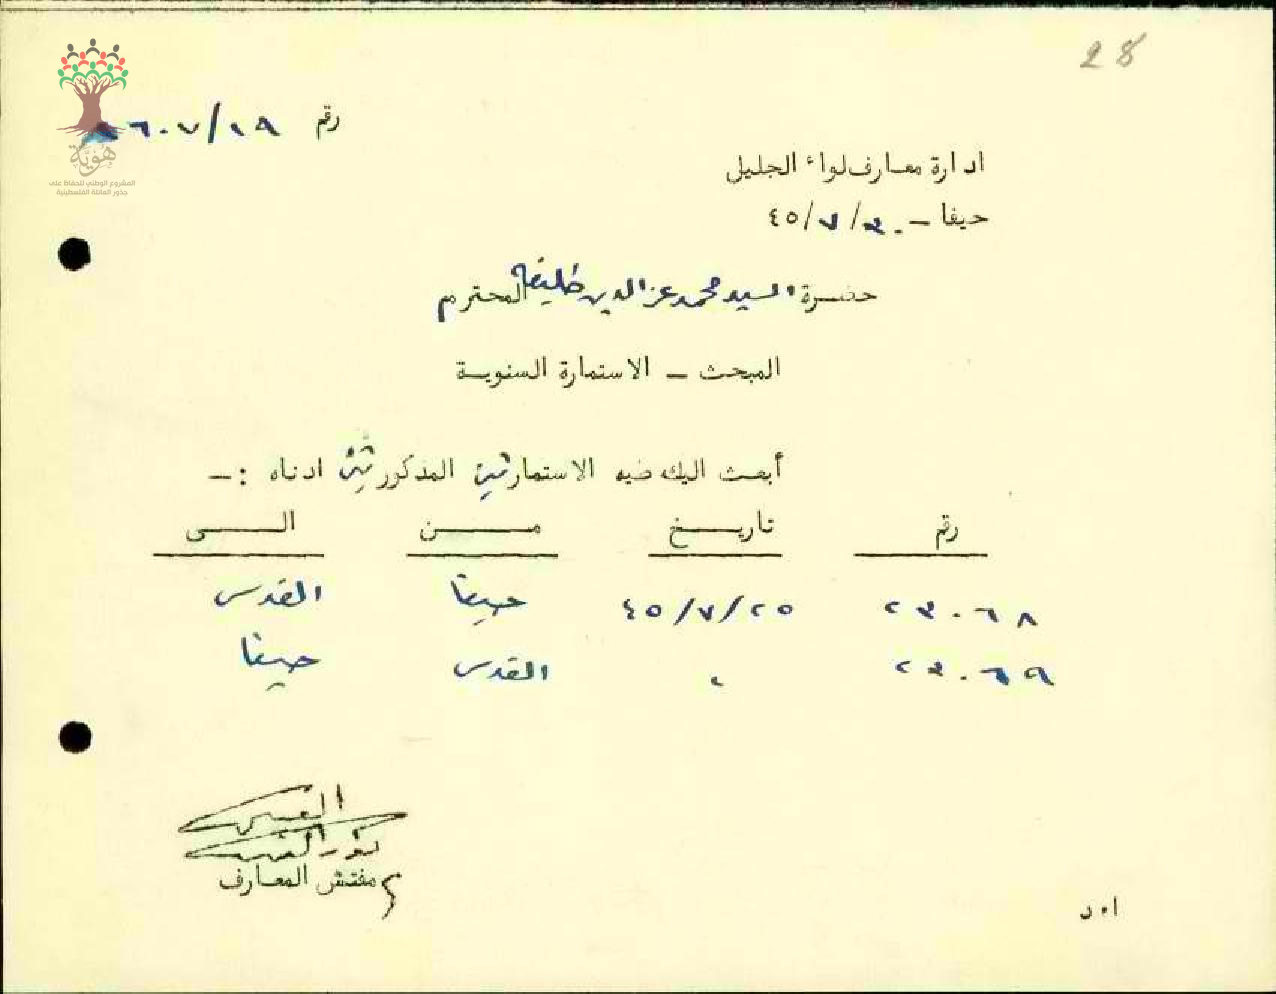 28
رقم ١٩/٦٠٧
هُوِيَّة
المشروع الوطني للحفاظ على
جذور العائلة الفلسطينية
ادارة معارف لواء الجليل
حيفا - ٣٠/٧/٤٥
حضرة السيد محمد عز الدين خليفة المحترم
المبحث - الاستمارة السنوية
أبعث اليك طيه الاستمارتين المذكورتين ادناه :-
رقم تاريخ من الى
٢٣٠٦٨ ٢٥/٧/٤٥ حيفا القدس
٢٣٠٦٩ ، القدس حيفا
مفتش المعارف
ا٠د